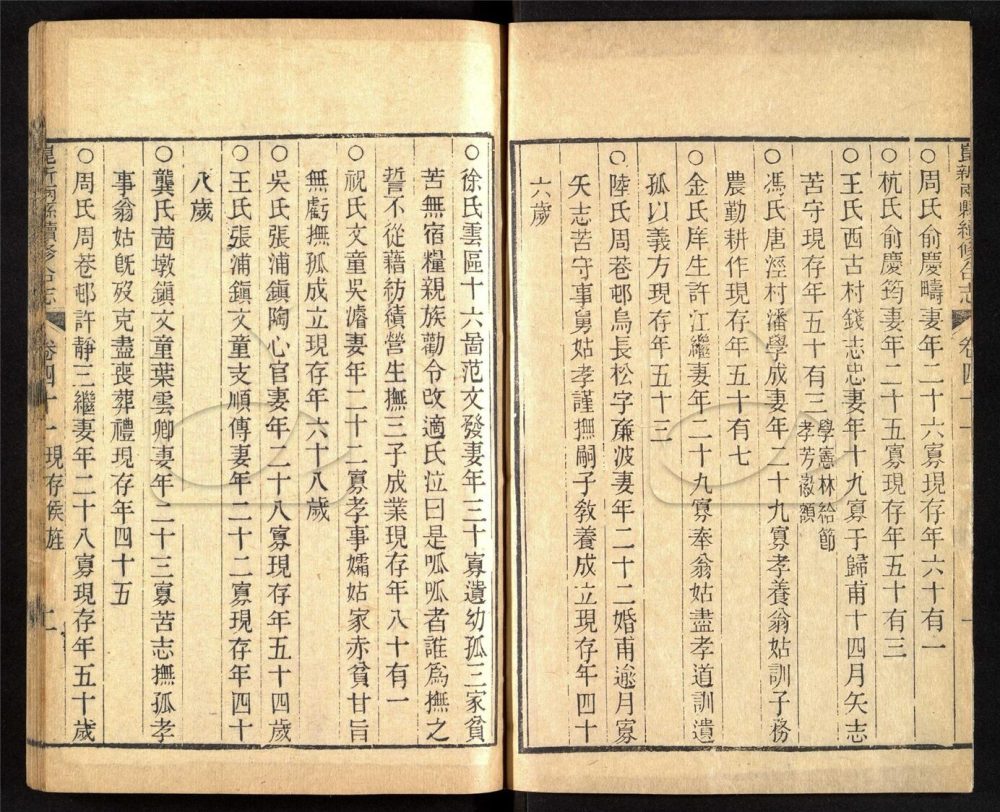 崑新兩縣續修合志 卷四十一
○周氏俞慶疇妻年二十六寡現存年六十有一
○杭氏俞慶筠妻年二十五寡現存年五十有三
○王氏西古村錢志忠妻年十九寡于歸甫十四月矢志
苦守現存年五十有三學憲林給節
孝芳徽額
○馮氏唐涇村潘學成妻年二十九寡孝養翁姑訓子務
農勤耕作現存年五十有七
○金氏庠生許江繼妻年二十九寡奉翁姑盡孝道訓遺
孤以義方現存年五十三
○陸氏周巷邨烏長松字廉波妻年二十二婚甫逾月寡
矢志苦守事舅姑孝謹撫嗣子敎養成立現存年四十
六歲
○徐氏雲區十六啚范文發妻年三十寡遺幼孤三家貧
苦無宿糧親族勸令改適氏泣曰是呱呱者誰爲撫之
誓不從藉紡績營生撫三子成業現存年八十有一
○祝氏文童吳濬妻年二十二寡孝事孀姑家赤貧甘旨
無虧撫孤成立現存年六十八歲
○吳氏張浦鎭陶心官妻年二十八寡現存年五十四歲
○王氏張浦鎭文童支順傳妻年二十二寡現存年四十
八歲
○龔氏茜墩鎭文童葉雲卿妻年二十三寡苦志撫孤孝
事翁姑旣歿克盡喪葬禮現存年四十五
○周氏周巷邨許靜三繼妻年二十八寡現存年五十歲
崑新兩縣續修合志 卷四十一 現存候旌 二